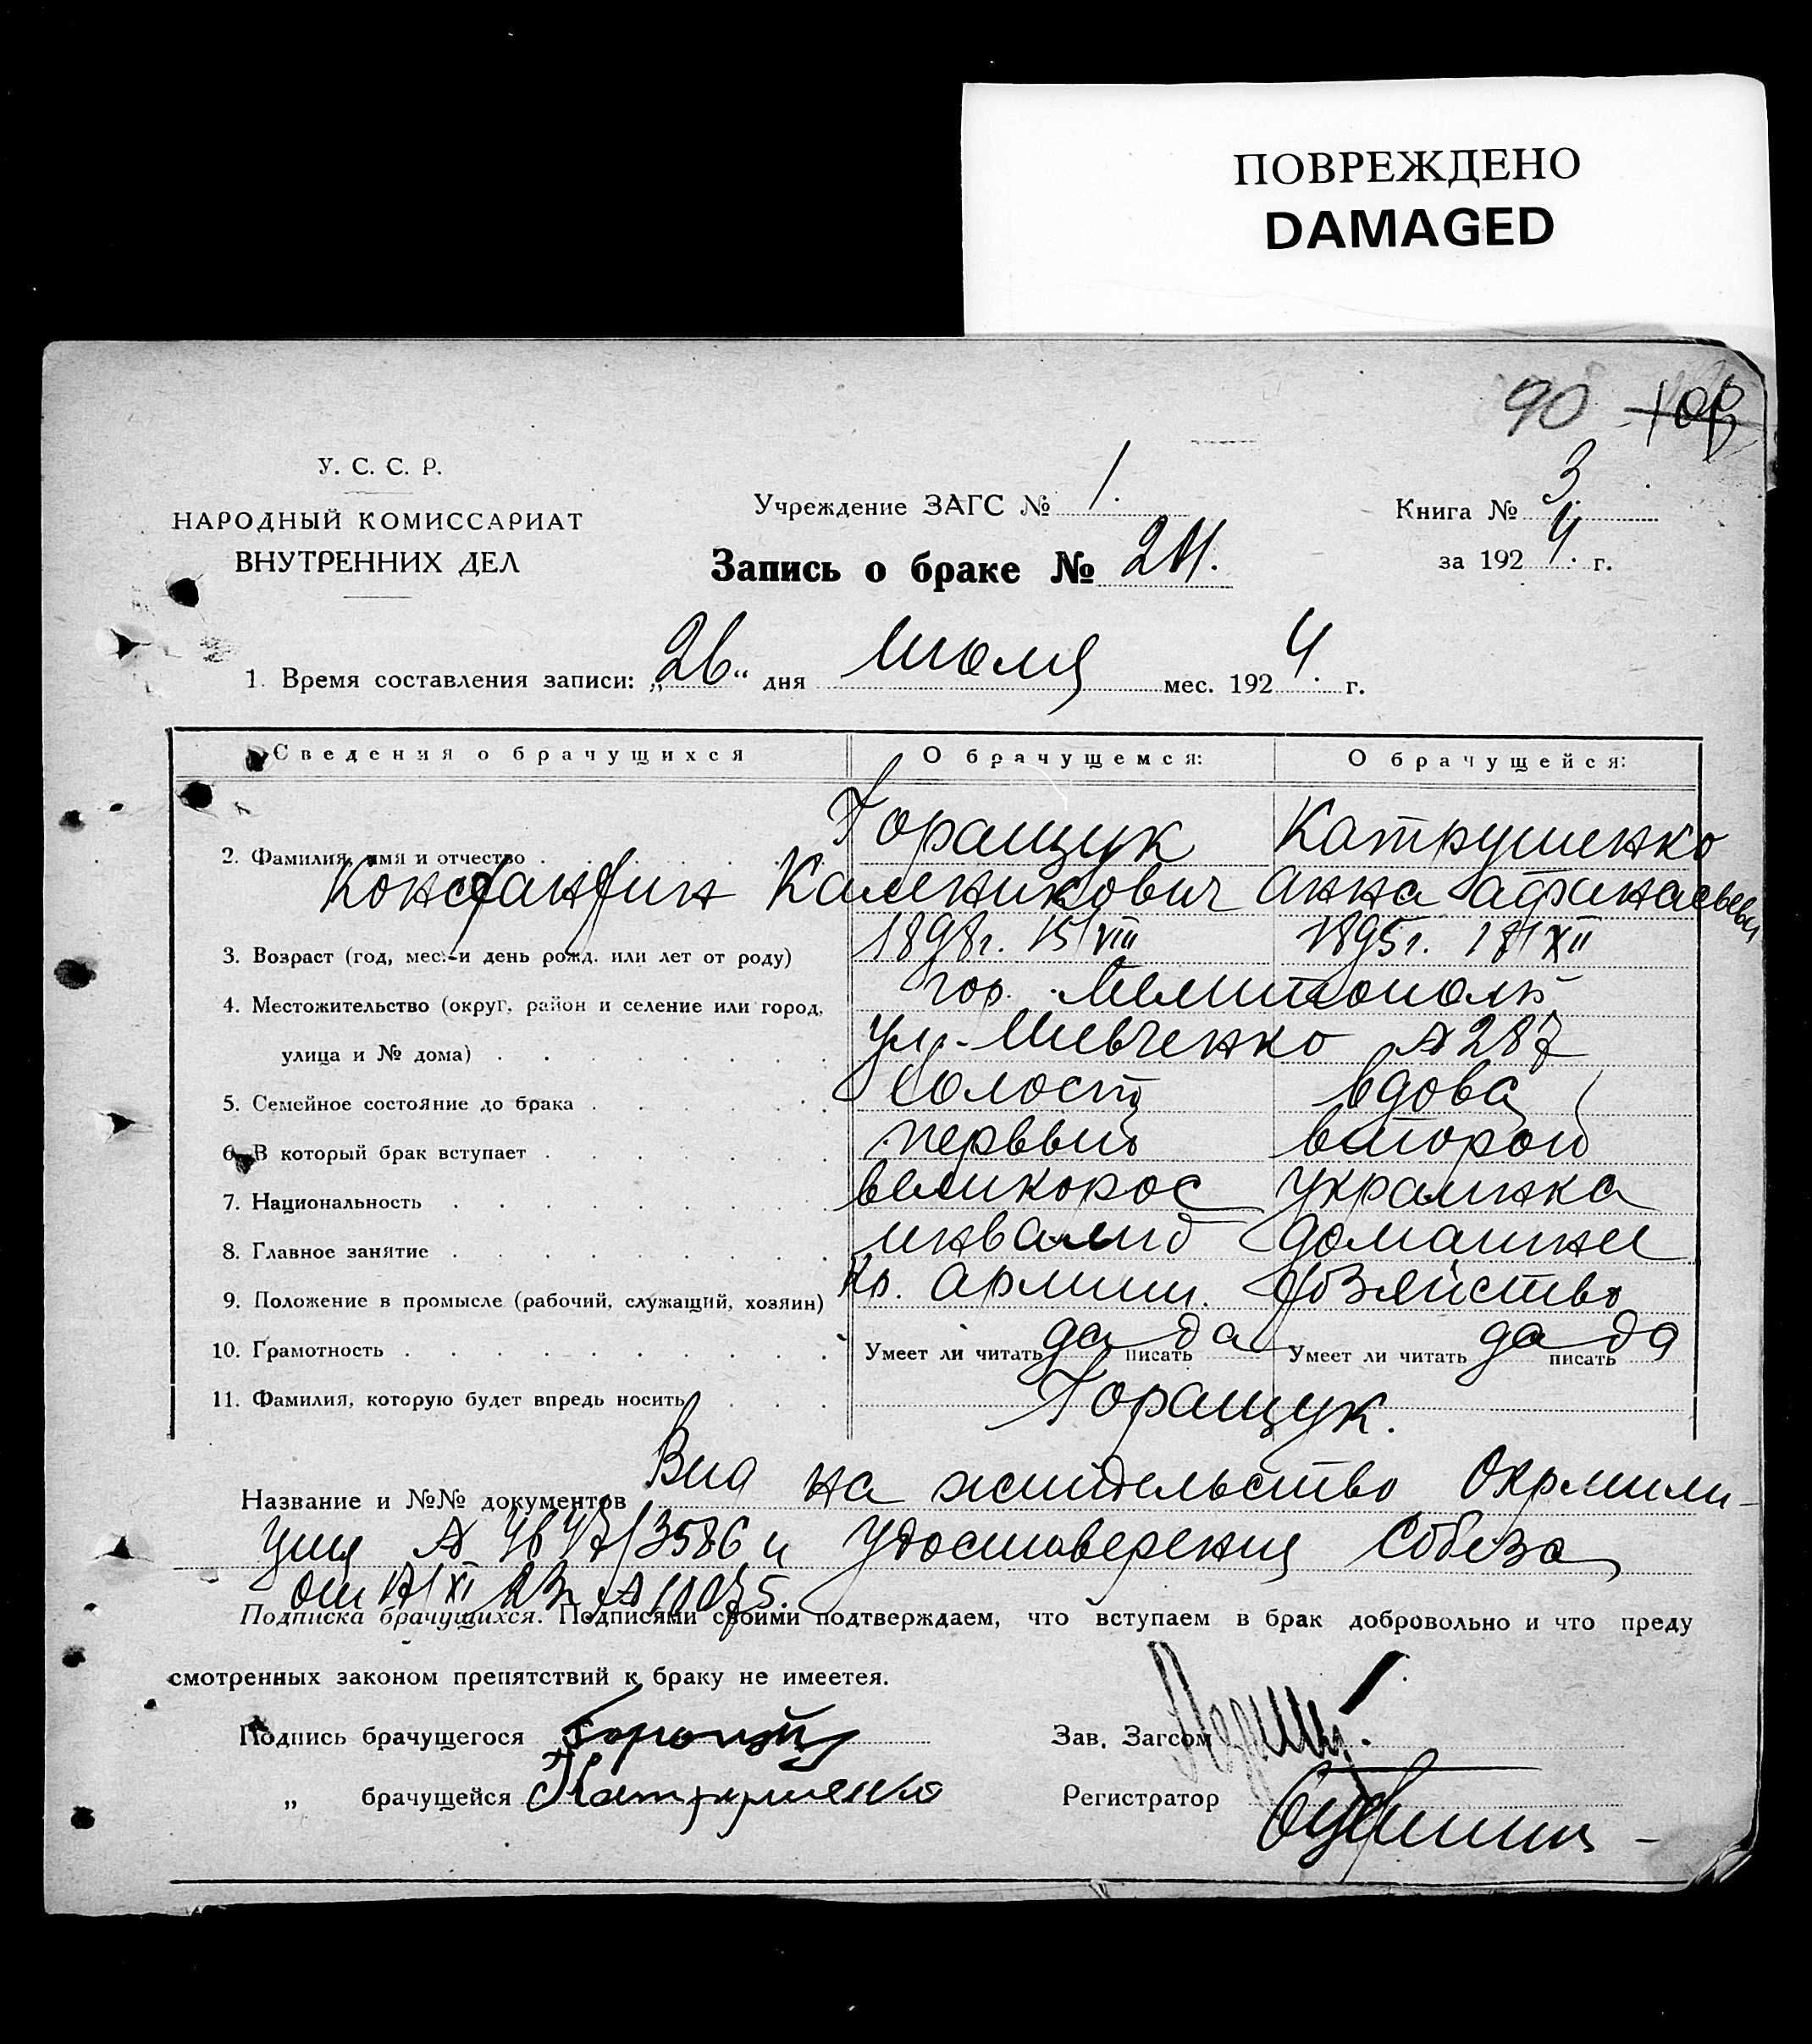 ПОВРЕЖДЕНО
DAMAGED
90
У. С. С. Р.
НАРОДНЫЙ КОМИССАРИАТ
ВНУТРЕННИХ ДЕЛ
Учреждение ЗАГС № 1.
Запись о браке №
Книга № 3.
за 1924. г.
1. Время составления записи: „26“ дня Июля мес. 1924. г.
Сведения о брачущихся О брачущемся: О брачущейся:
2. Фамилия, имя и отчество Горащук Катрушенко
Константин Каленикович Анна Афанасьевна
3. Возраст (год, мес. и день рожд. или лет от роду) 1898г. 15/VIII 1895г. 17/XII
4. Местожительство (округ, район и селение или город, гор. Мелитополь
улица и № дома) ул. Шевченко № 287
5. Семейное состояние до брака Холост вдова
6. В который брак вступает первый второй
7. Национальность великорос Украинка
8. Главное занятие инвалид домашнее
9. Положение в промысле (рабочий, служащий, хозяин) Кр. армии. хозяйство
10. Грамотность Умеет ли читать да писать да Умеет ли читать да писать да
11. Фамилия, которую будет впредь носить Горащук.
Название и №№ документов Вид на жительство Окрмили-
ция № 4647/3586 и Удостоверения Собеза
от 17/XI 23г. № 10075.
Подписка брачущихся. Подписями своими подтверждаем, что вступаем в брак добровольно и что преду
смотренных законом препятствий к браку не имеется.
Подпись брачущегося
Зав. Загсом
„ брачущейся Катрушенко
Регистратор